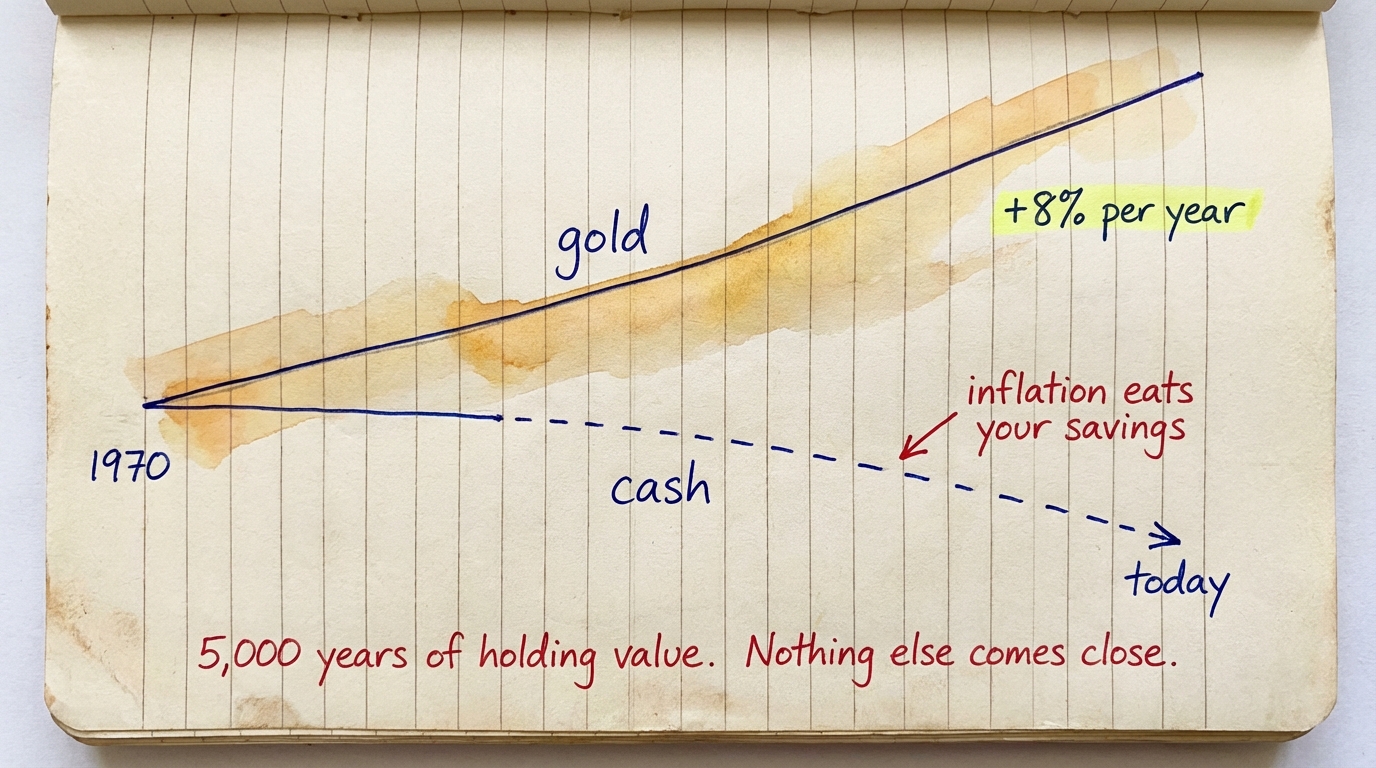 gold
+8% per year
inflation eats
your savings
1970
cash
today
5,000 years of holding value. Nothing else comes close.